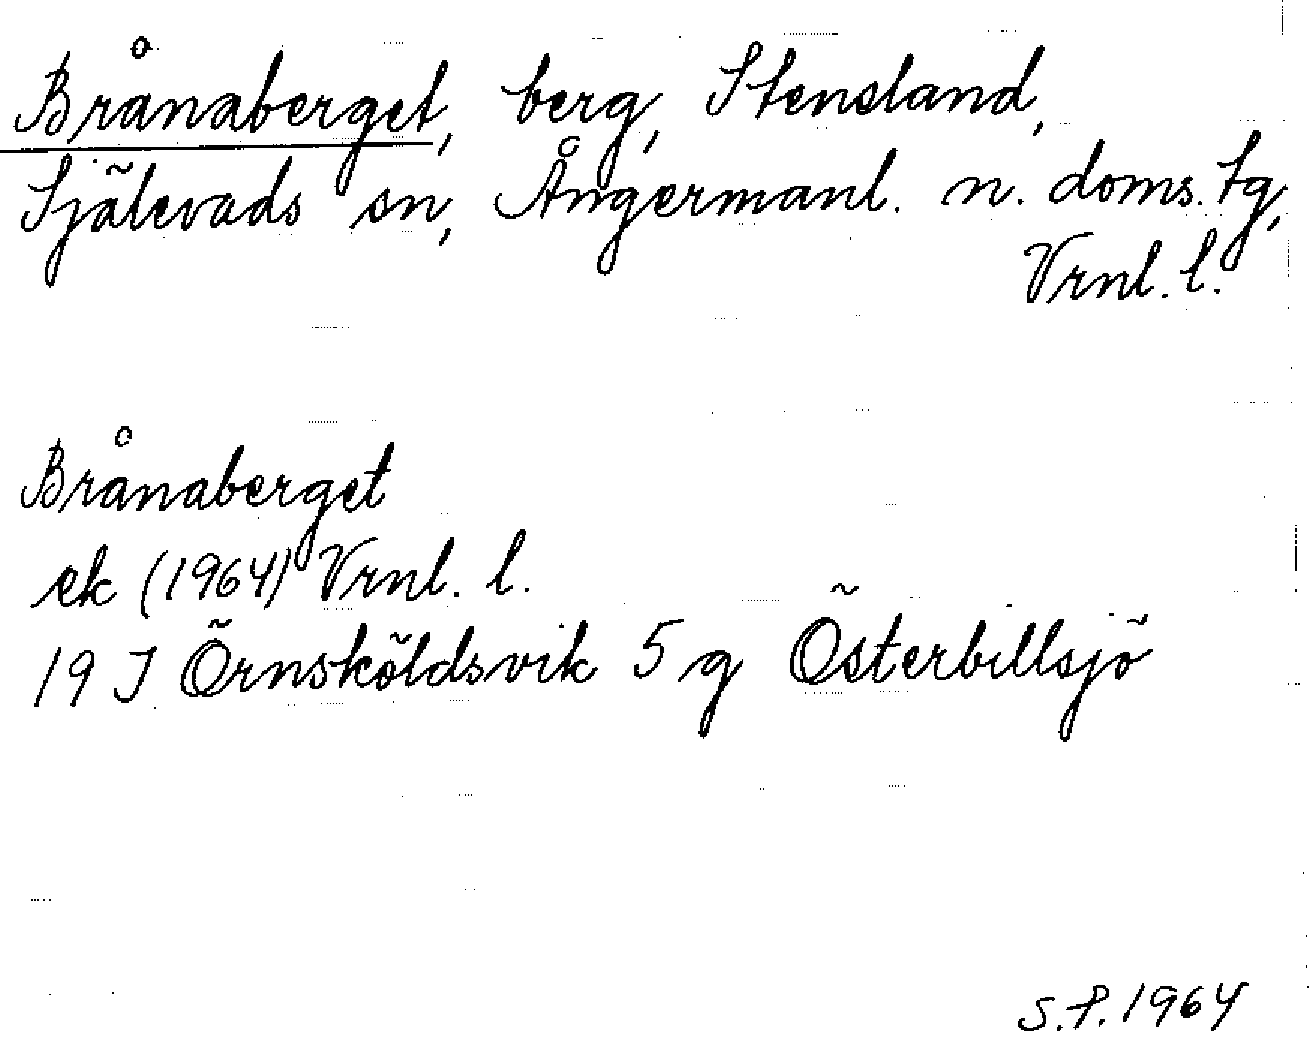 Brånaberget, berg, Stensland,
Själevads sn, Ångermanl. n. doms. tg,
Vrnl. l.
Brånaberget
ek (1964) Vrnl. l.
19 J Örnsköldsvik 5 g Österbillsjö
S.P. 1964